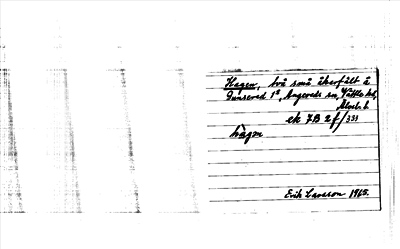 Hagen, två små åkerfält å
Gunnered 1², Angereds sn, Vättle hd,
Älvsb. l.
ek 7B 2f/331
hàgen
Erik Larsson 1965.